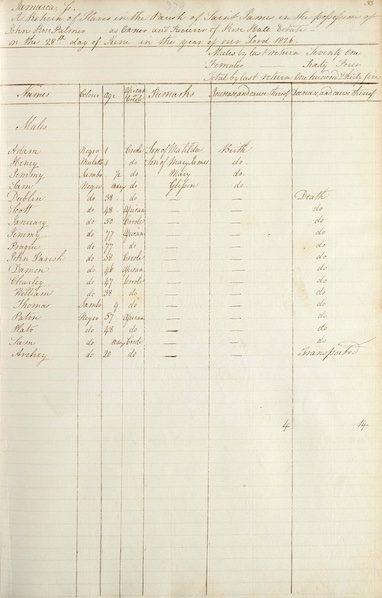 Jamaica fs.
A Return of Slaves in the Parish of Saint James in the possession of
John Rose Palmer as Owner and Receiver of Rose Hall Estate
on the 28th day of June in the year of our Lord 1826.
Males by last return Seventy One
Females Sixty Four
Total by last return One hundred & thirty five
Names Colour Age African or Creole Remarks Increase and cause thereof Decrease and cause thereof
Males
Adam Negro 1 Creole Son of Matilda Birth
Henry Mulatto 1 do Son of Mary James do.
Tommy Sambo do Mary do.
Sam Negro do do.
Dublin do 38 do — — Death
Scott do 48 African — — do
January do 50 Creole — — do
Jemmy do 77 African — — do
Prague do 77 do — — do
John Parish do 38 Creole — — do
Damon do 46 African — — do
Charley do 47 Creole — — do
William do 38 do — — do
Thomas Sambo 9 do — — do
Paton Negro 57 African — — do
Plato do 48 do — — do
Sam do Creole — — do
Archey do 20 do — — Transported
4 14